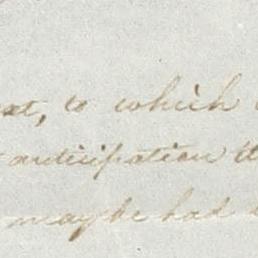 to which
anticipation
may be had